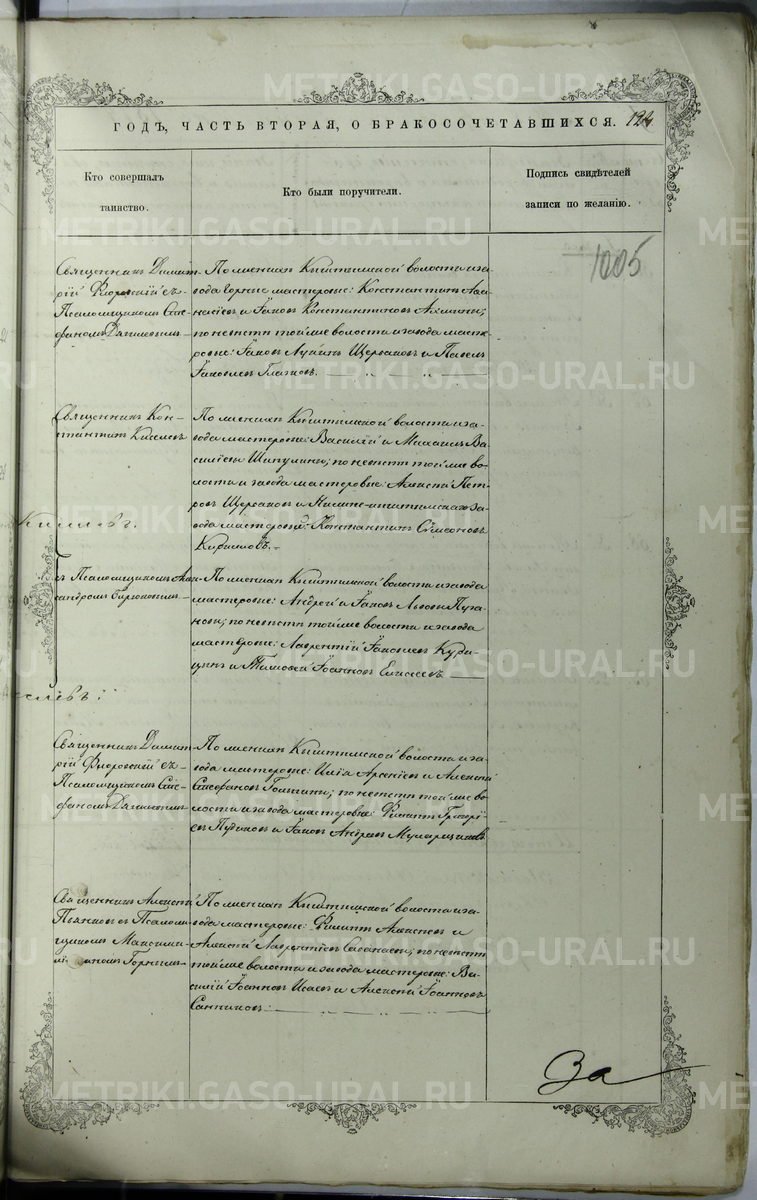 METRIKI.GASO-URAL.RU
ГОДЪ, ЧАСТЬ ВТОРАЯ, О БРАКОСОЧЕТАВШИХСЯ. 124
Кто совершалъ
таинство.
Кто были поручители.
Подпись свидѣтелей
записи по желанію.
1005
Священникъ Димит-
рій Флоровскій съ
Псаломщикомъ Сте-
фаномъ
По женихѣ Кыштымской волости и за-
вода горные мастеровые: Константинъ
и Іаковъ Константиновъ
по невѣстѣ той же волости и завода масте-
ровые: Іаковъ Лукинъ Щербаковъ и Павелъ
Іаковлевъ Глазковъ.
Священникъ Кон-
стантинъ Киселевъ
По женихѣ Кыштымской волости и за-
вода мастеровые: Василій и Михаилъ Ва-
сильевы Шипулины; по невѣстѣ той же во-
лости и завода мастеровые: Алексѣй Пет-
ровъ Щербаковъ и Нижне-Кыштымскаго за-
вода мастеровой Константинъ Сѵмеоновъ
Кирилловъ.
съ Псаломщикомъ Алек-
сандромъ Бирюковымъ
По женихѣ Кыштымской волости и завода
мастеровые: Андрей и Іаковъ Львовы
по невѣстѣ той же волости и завода
мастеровые: Лаврентій Іаковлевъ
и Тимофей Іоанновъ Елисеевъ
Священникъ Димит-
рій Флоровскій съ
Псаломщикомъ Сте-
фаномъ
По женихѣ Кыштымской волости и за-
вода мастеровые: Илія Арсеніевъ и Алексѣй
Стефановъ по невѣстѣ той же во-
лости и завода мастеровые: Филиппъ Григорі-
евъ и Іаковъ Андреевъ
Священникъ Алексѣй
Пьянковъ съ Псалом-
щикомъ Максими-
Горнымъ
По женихѣ Кыштымской волости и за-
вода мастеровые: Филиппъ Алексѣевъ и
Алексѣй Лаврентіевъ по невѣстѣ
той же волости и завода мастеровые: Ва-
силій Іоанновъ Исаевъ и Алексѣй Іоанновъ
Санниковъ
За